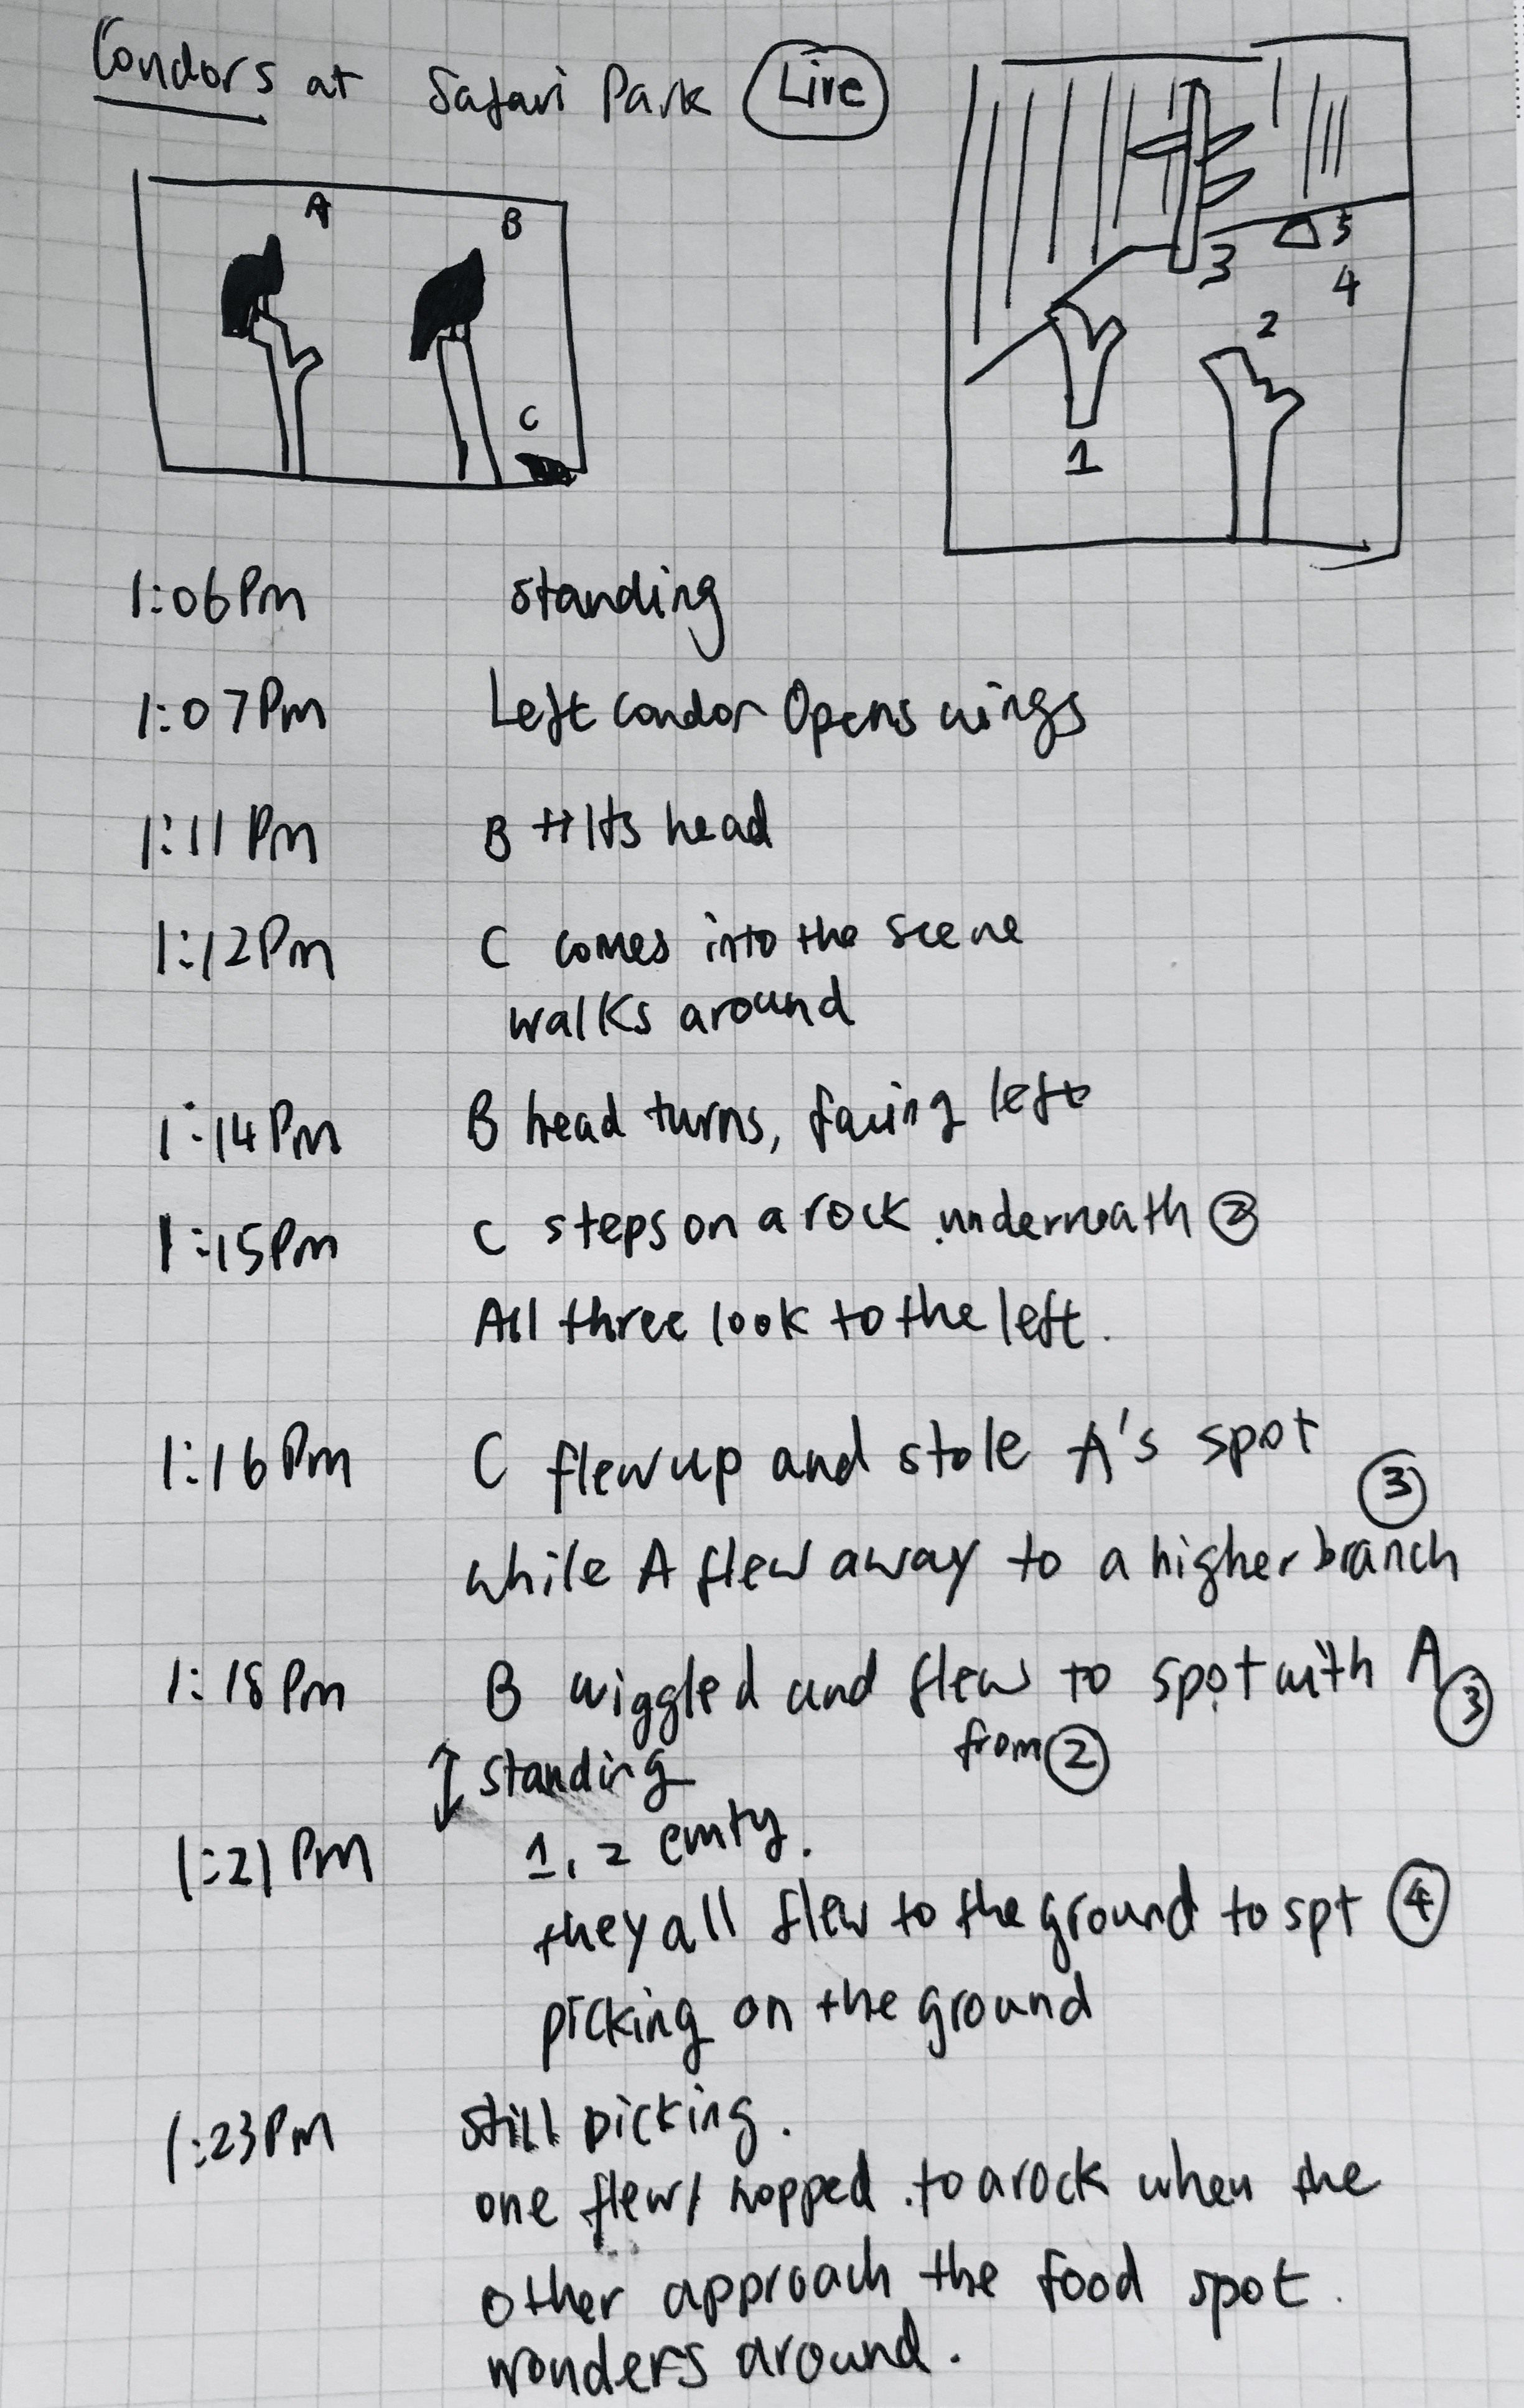 Condors at Safari Park Live
A
B
C
3
5
4
2
1
1:06Pm standing
1:07Pm Left Condor Opens wings
1:11 Pm B tilts head
1:12Pm C comes into the scene
walks around
1:14Pm B head turns, facing left
1:15Pm C steps on a rock underneath
All three look to the left.
1:16Pm C flew up and stole A's spot
3
while A flew away to a higher branch
1:18Pm B wiggled and flew to spot with A 3
from 2
standing
1:21 Pm 1, 2 emty.
they all flew to the ground to spt 4
picking on the ground
1:23Pm still picking.
one flew/hopped to a rock when the
other approach the food spot.
wonders around.